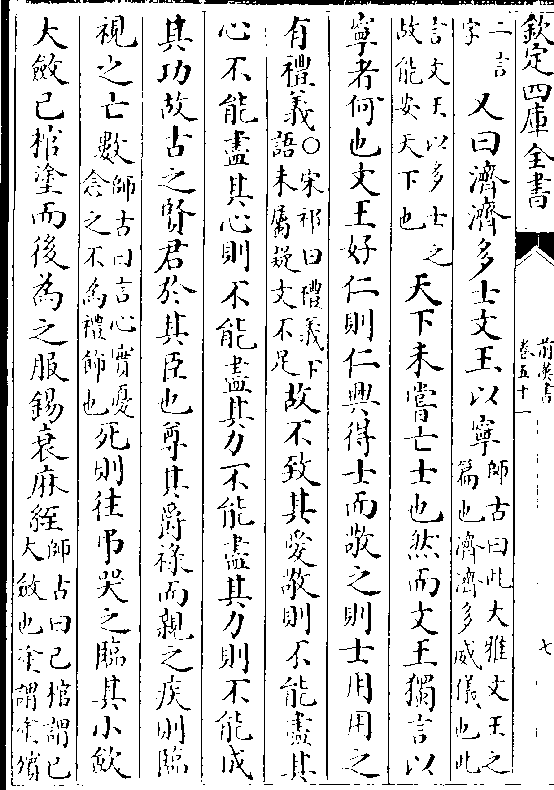 欽定四庫全書
前漢書
卷五十一
七
二言
字
又曰濟濟多士文王以寧
師古曰此大雅文王之
篇也濟濟多威儀也此
言文王以多士之
故能安天下也
天下未嘗亡士也然而文王獨言以
寧者何也文王好仁則仁興得士而敬之則士用用之
有禮義
○宋祁曰禮義下
語未屬疑文不足
故不致其愛敬則不能盡其
心不能盡其心則不能盡其力不能盡其力則不能成
其功故古之賢君於其臣也尊其爵祿而親之疾則臨
視之亡數
師古曰言心實憂
念之不為禮飾也
死則往弔哭之臨其小斂
大斂已棺塗而後為之服錫衰麻絰
師古曰已棺謂已
大斂也塗謂塗殯